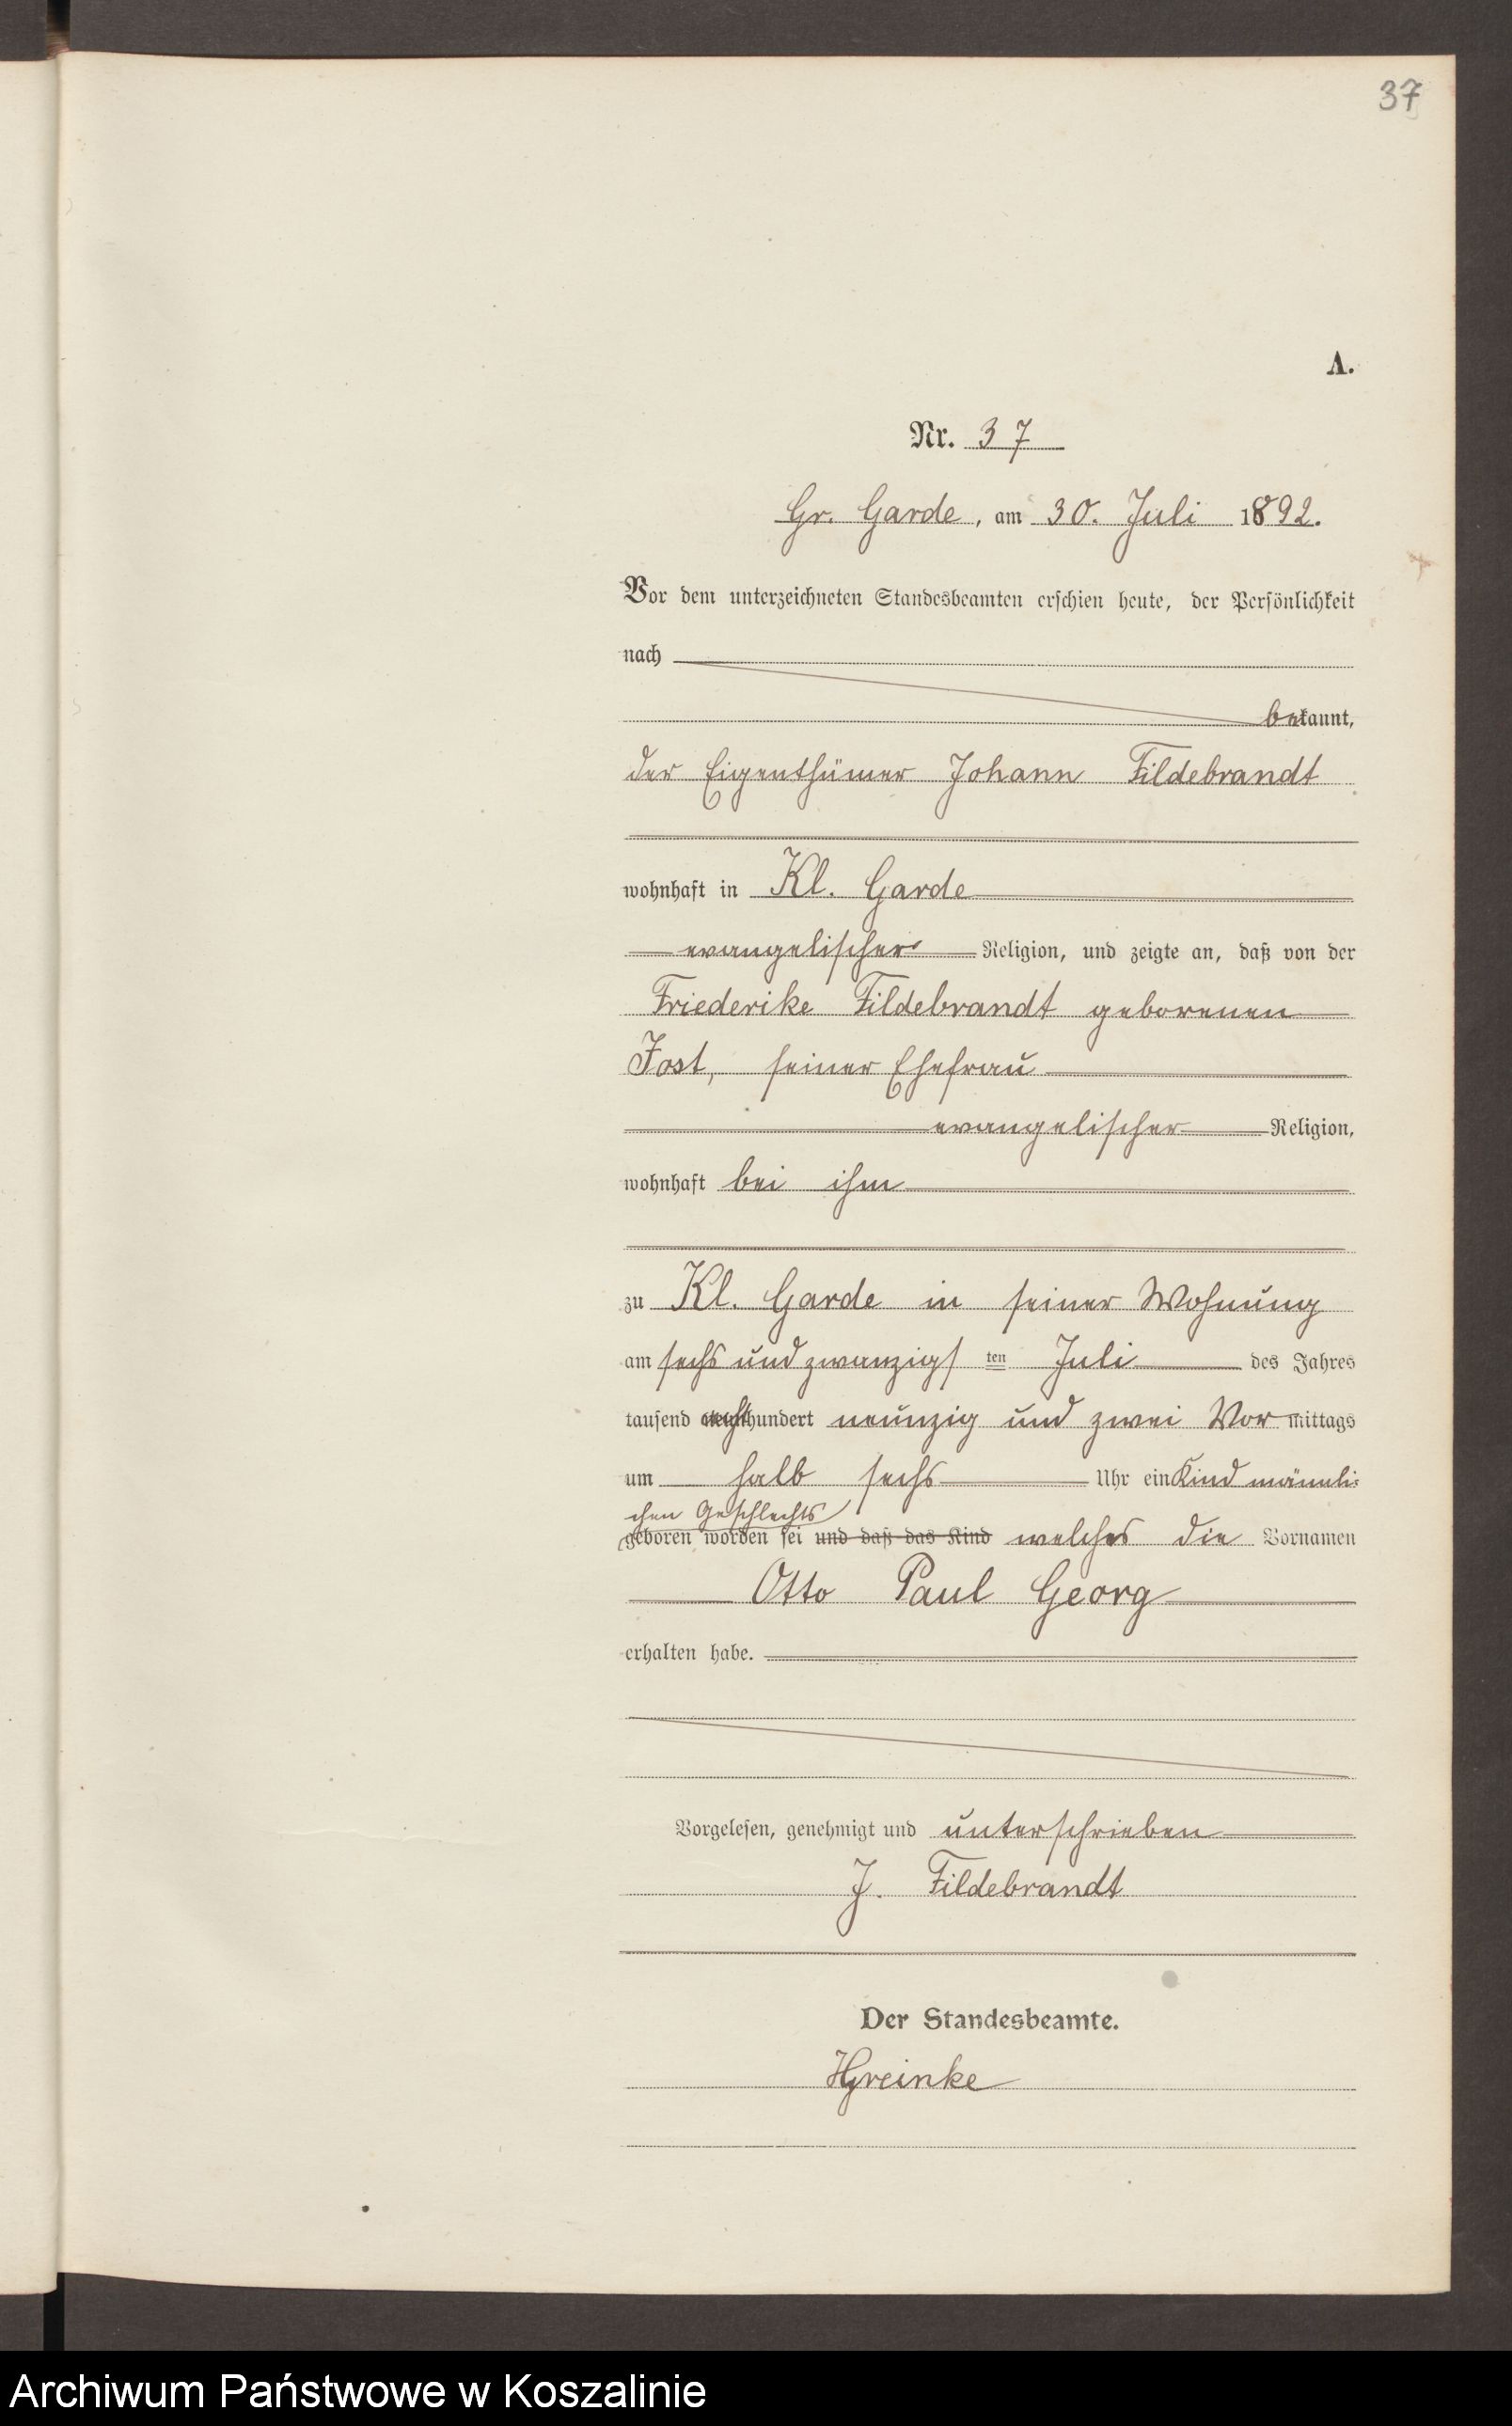 37
A.
Nr. 37
Gr. Garde, am 30. Juli 1892.
Vor dem unterzeichneten Standesbeamten erschien heute, der Persönlichkeit
nach
bekannt,
der Eigenthümer Johann Fildebrandt
wohnhaft in Kl. Garde
evangelischer Religion, und zeigte an, daß von der
Friederike Fildebrandt geborenen
Jost, seiner Ehefrau
evangelischer Religion,
wohnhaft bei ihm
zu Kl. Garde in seiner Wohnung
am sechs und zwanzigsten Juli des Jahres
tausend achthundert neunzig und zwei Vormittags
um halb sechs Uhr ein Kind männli-
chen Geschlechts
geboren worden sei und daß das Kind welches die Vornamen
Otto Paul Georg
erhalten habe.
Vorgelesen, genehmigt und unterschrieben
J. Fildebrandt
Der Standesbeamte.
Archiwum Państwowe w Koszalinie